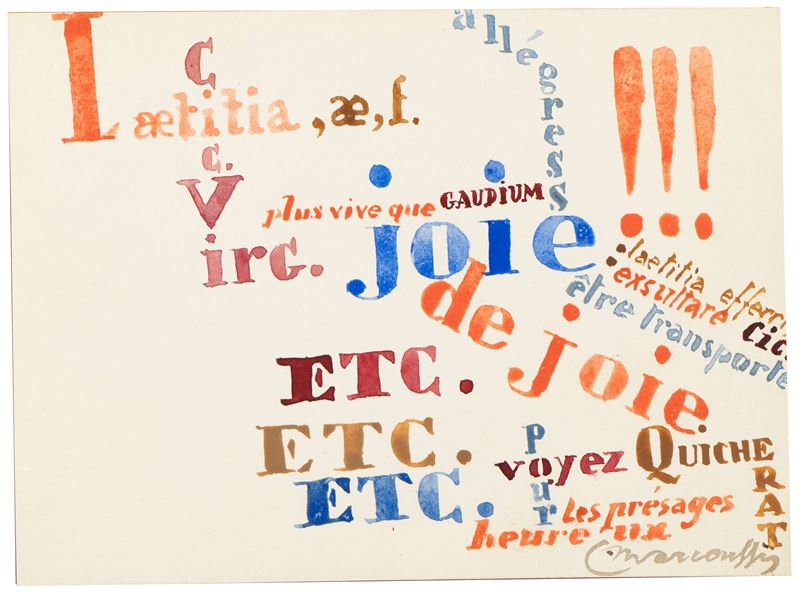 Lætitia, æ, f.
C
c.
Virg.
allégresse
!!!
plus vive que GAUDIUM
joie
de joie
: laetitia efferri
exsultare Cic.
être transporté
ETC.
ETC.
ETC.
pour
voyez QUICHERAT
Les présages
heureux
L. Marcoussis